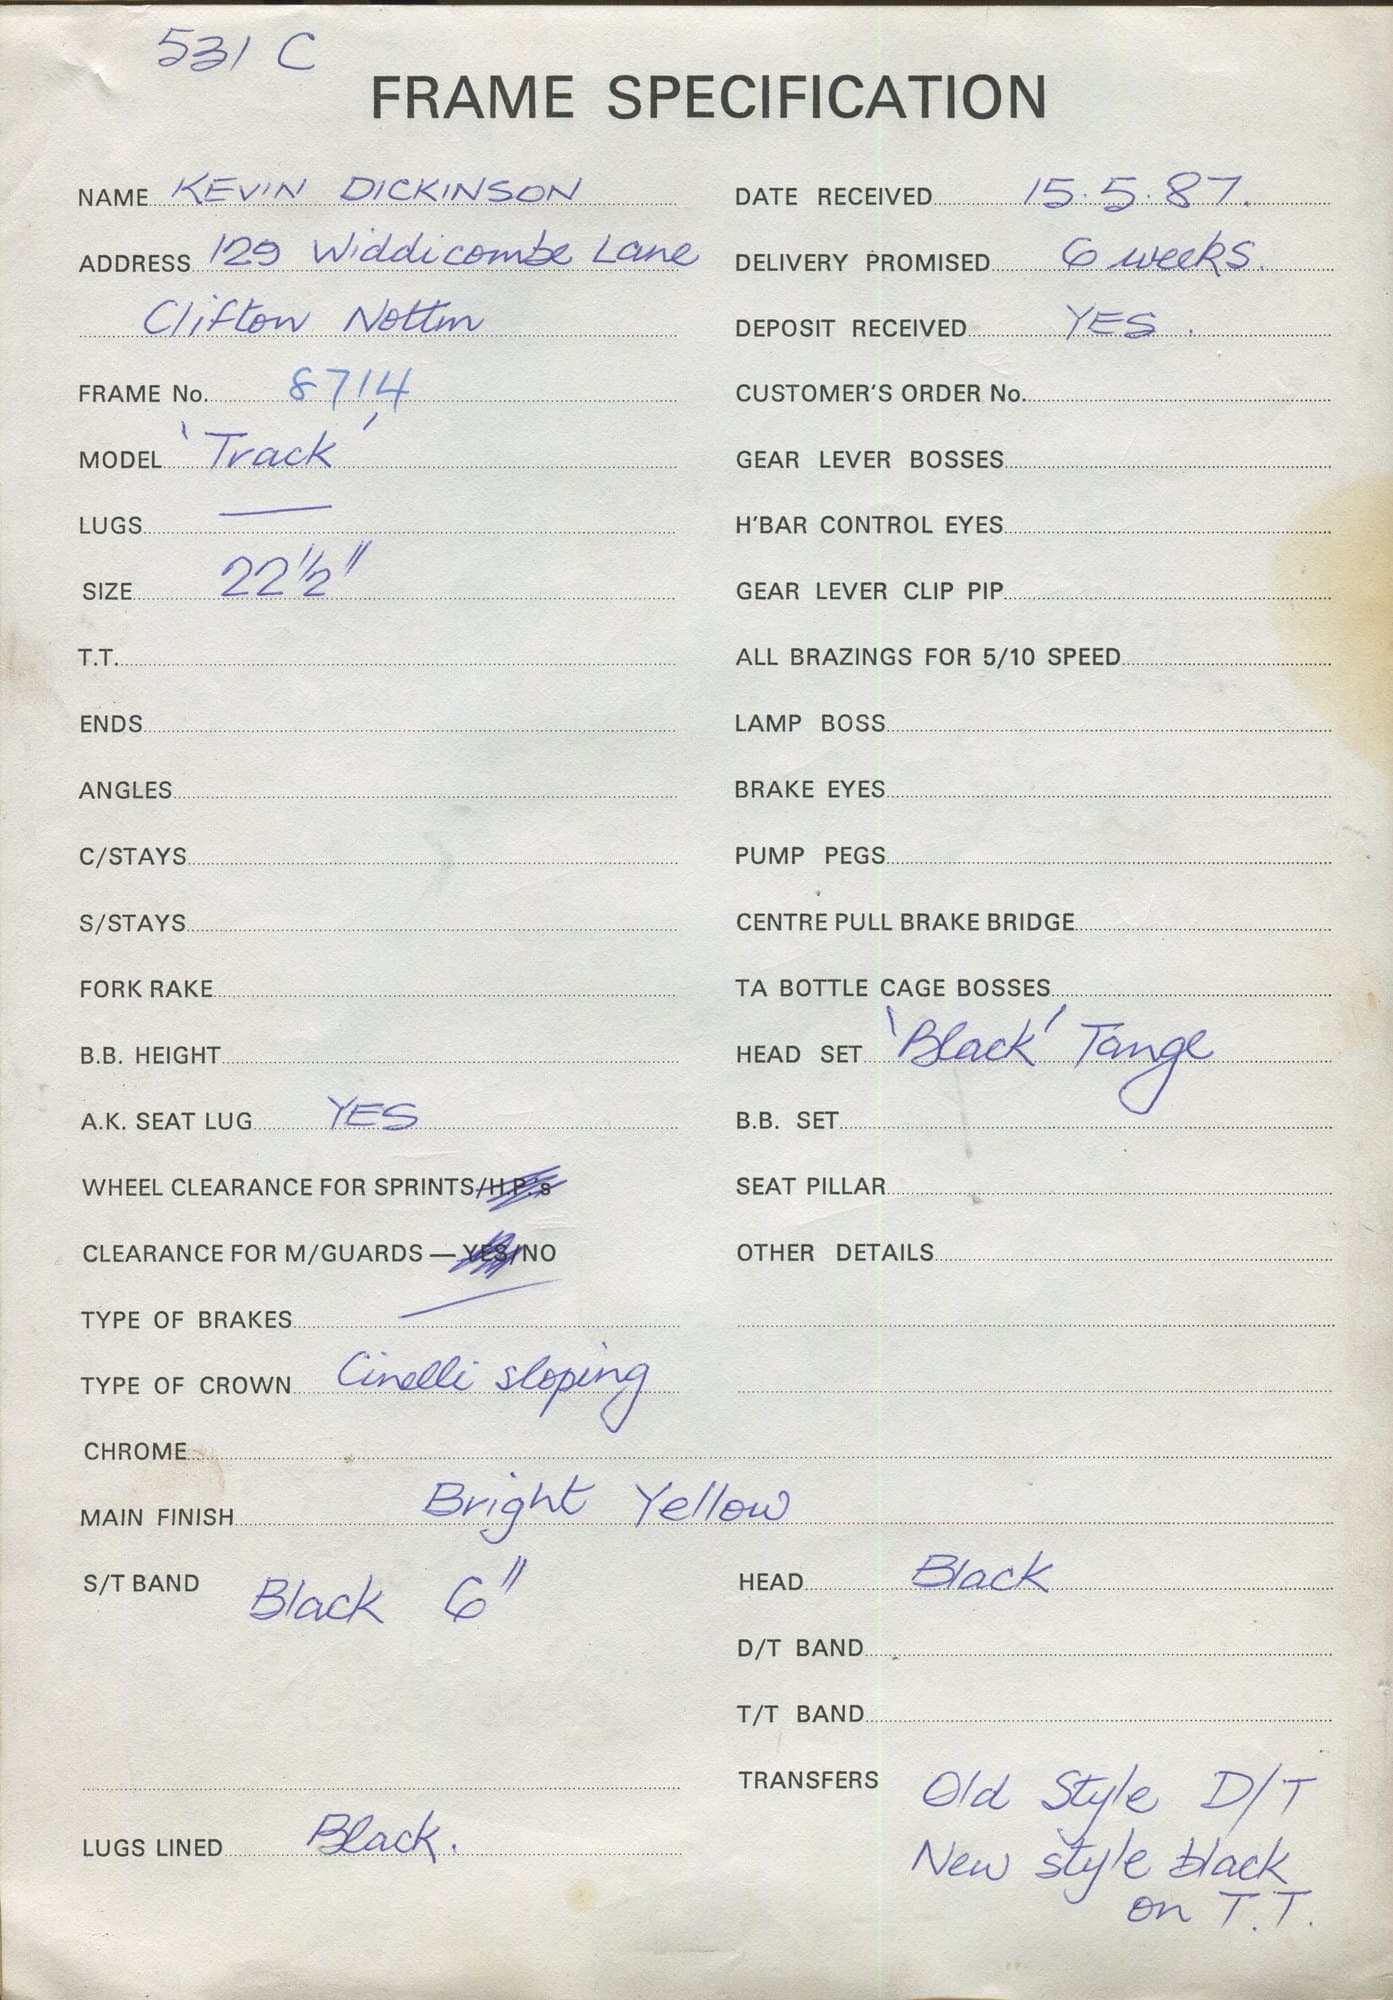 531 C
FRAME SPECIFICATION
NAME KEVIN DICKINSON
ADDRESS 129 Widdicombe Lane
Clifton Nottm
FRAME No. 8714
MODEL 'Track'
LUGS
SIZE 22½"
T.T.
ENDS
ANGLES
C/STAYS
S/STAYS
FORK RAKE
B.B. HEIGHT
A.K. SEAT LUG YES
WHEEL CLEARANCE FOR SPRINTS/H.P.'s
CLEARANCE FOR M/GUARDS — YES/NO
TYPE OF BRAKES
TYPE OF CROWN Cinelli sloping
DATE RECEIVED 15.5.87.
DELIVERY PROMISED 6 weeks.
DEPOSIT RECEIVED YES.
CUSTOMER'S ORDER No.
GEAR LEVER BOSSES
H'BAR CONTROL EYES
GEAR LEVER CLIP PIP
ALL BRAZINGS FOR 5/10 SPEED
LAMP BOSS
BRAKE EYES
PUMP PEGS
CENTRE PULL BRAKE BRIDGE
TA BOTTLE CAGE BOSSES
HEAD SET 'Black' Tange
B.B. SET
SEAT PILLAR
OTHER DETAILS
CHROME
MAIN FINISH Bright Yellow
S/T BAND Black 6"
LUGS LINED Black.
HEAD Black
D/T BAND
T/T BAND
TRANSFERS Old Style D/T
New style black
on T.T.